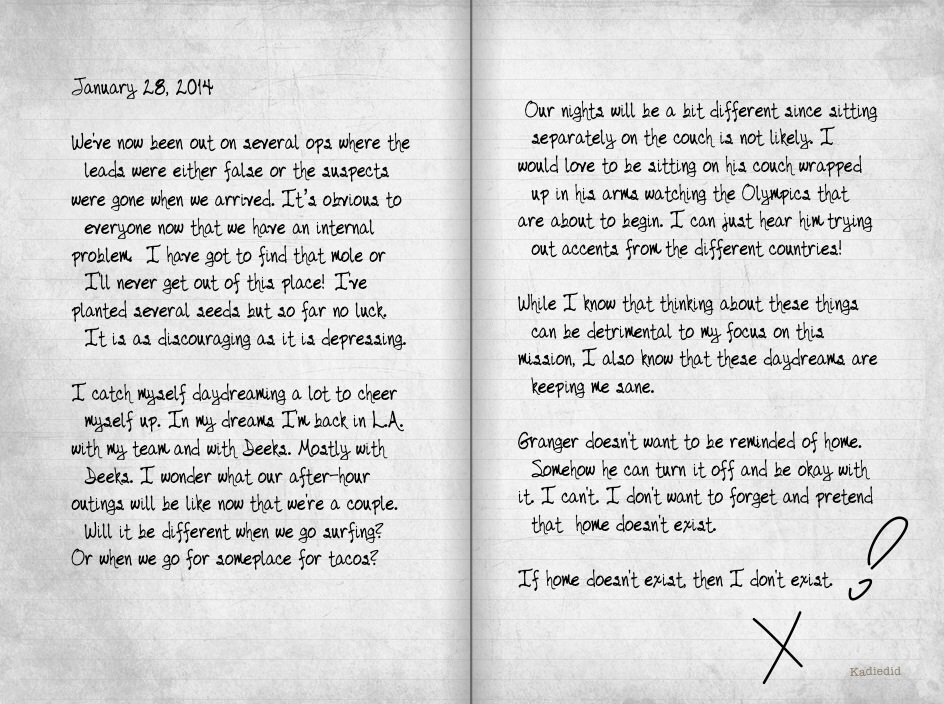 January 28, 2014
We've now been out on several ops where the
leads were either false or the suspects
were gone when we arrived. It's obvious to
everyone now that we have an internal
problem. I have got to find that mole or
I'll never get out of this place! I've
planted several seeds but so far no luck.
It is as discouraging as it is depressing.
I catch myself daydreaming a lot to cheer
myself up. In my dreams I'm back in L.A.
with my team and with Deeks. Mostly with
Deeks. I wonder what our after-hour
outings will be like now that we're a couple.
Will it be different when we go surfing?
Or when we go for someplace for tacos?
Our nights will be a bit different since sitting
separately on the couch is not likely. I
would love to be sitting on his couch wrapped
up in his arms watching the Olympics that
are about to begin. I can just hear him trying
out accents from the different countries!
While I know that thinking about these things
can be detrimental to my focus on this
mission, I also know that these daydreams are
keeping me sane.
Granger doesn't want to be reminded of home.
Somehow he can turn it off and be okay with
it. I can't. I don't want to forget and pretend
that home doesn't exist.
If home doesn't exist, then I don't exist.
X
Kadiedid